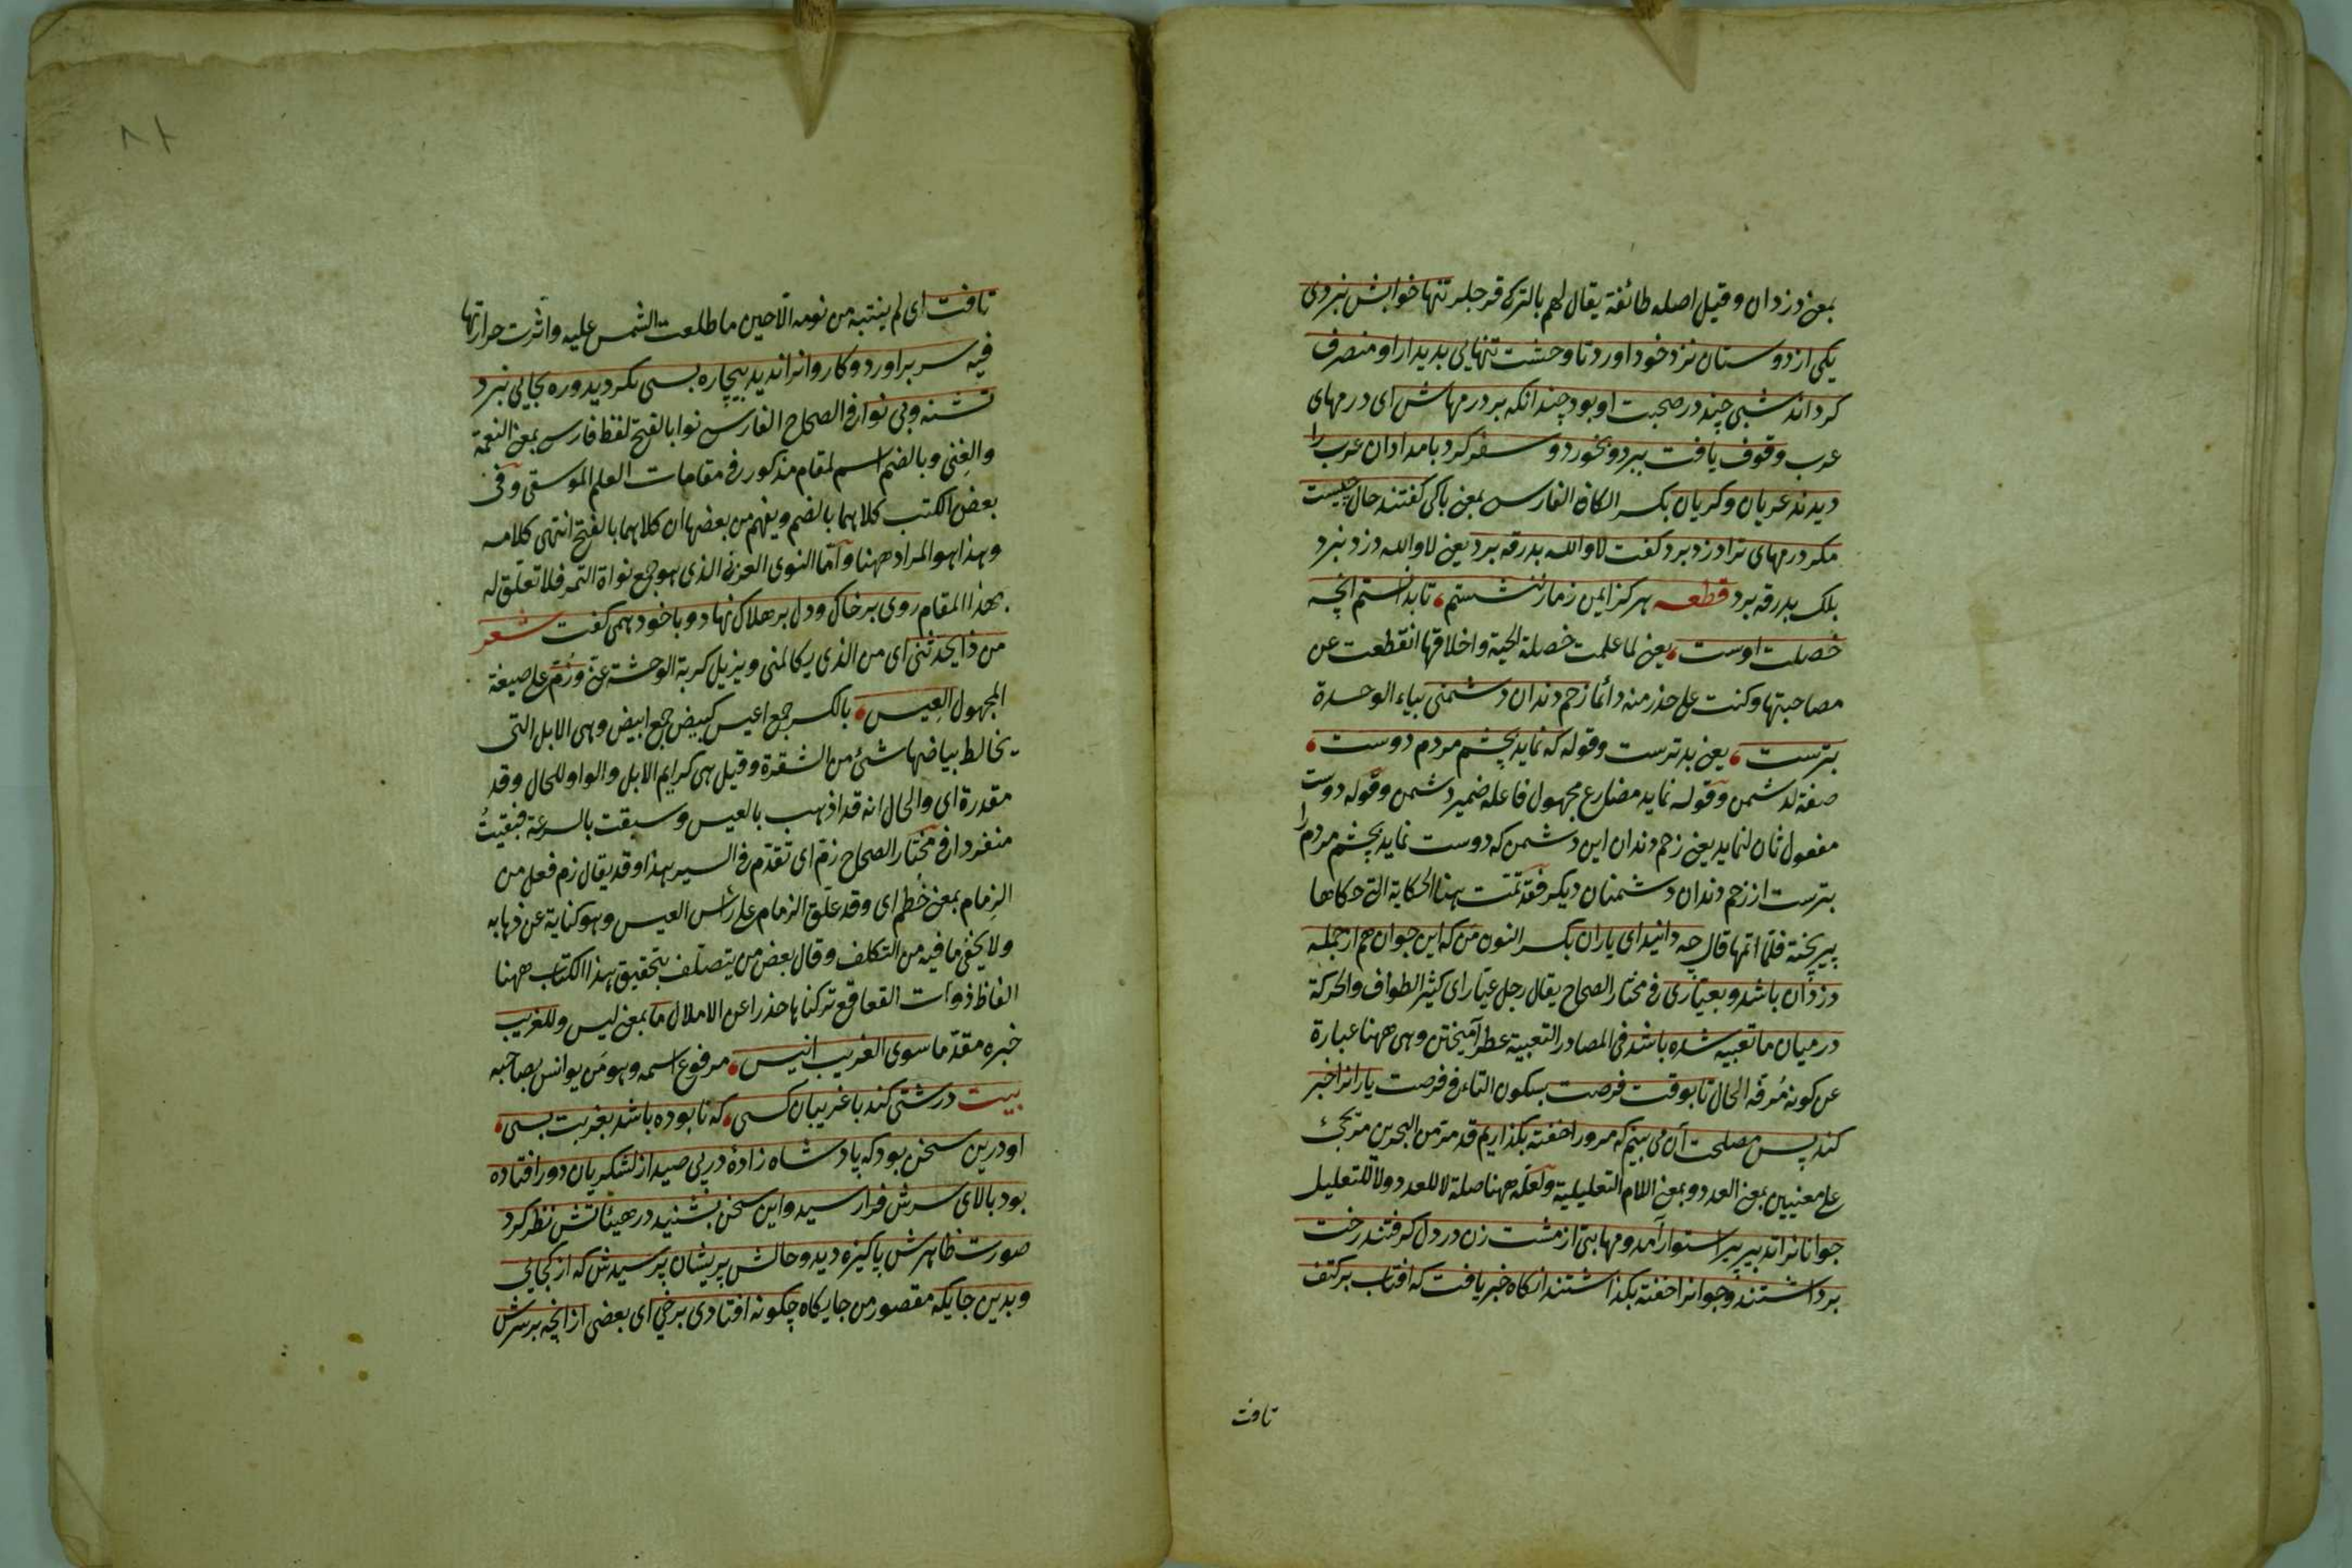 بمعنى دزدان وقيل اصله طائفة يقال لهم بالترك قرجلر تنها خوابش نبردى
يكى از دوستان نزد خود اورد تا وحشت تنهايى بديدار او منصرف
كرداند شبى چند در صحبت او بود چندانكه بر درمهاش اى درمهاى
عرب وقوف يافت ببرد وبخورد وسفر كرد بامدادان عرب را
ديدند عريان وكريان بكسر الكاف الفارسى بمعنى باكى كفتند حال چيست
مكر درمهاى ترا دزد برد كفت لا والله بدرقه برد يعنى لا والله دزد نبرد
بلك بدرقه برد قطعه هركز ايمن زمار ننشستم، تا بدانستم انچه
خصلت اوست، يعنى لما علمت خصلة الحية واخلاقها انقطعت عن
مصاحبتها وكنت على حذر منه دائما زخم دندان دشمنى بياء الوحدة
بترست، يعنى بدترست وقوله كه نمايد بچشم مردم دوست،
صفة لدشمن وقوله نمايد مضارع مجهول فاعله ضمير دشمن وقوله دوست
مفعول ثان لنمايد يعنى زخم دندان اين دشمن كه دوست نمايد بچشم مردم را
بترست از زخم دندان دشمنان ديكر فقد تمت هنا الحكاية التى حكاها
پير پخته فلما اتمها قال چه دانيد اى ياران بكسر النون من كه اين جوان هم از جمله
دزدان باشد وبعيارى فى مختار الصحاح يقال رجل عيار اى كثير الطواف والحركة
در ميان ما تعبيه شده باشد فى المصادر التعبية عطر آميختن وهى ههنا عبارة
عن كونه مرفه الحال تا بوقت فرصت بسكون التاء فى فرصت يارانرا خبر
كند پس مصلحت آن مى بينم كه مرورا خفته بكذاريم قد مر من البحرين مر يجئ
على معنيين بمعنى العدد وبمعنى اللام التعليلية ولعله ههنا صلة لا للعدد ولا للتعليل
جوانانرا تدبير پير استوار آمد ومهابتى از مشت زن در دل كرفتند رخت
برداشتند وجوانرا خفته بكذاشتند انكاه خبر يافت كه افتاب بر كتف
تافت
تافت اى لم ينتبه من نومه الا حين ما طلعت الشمس عليه واثرت حرارتها
فيه سر براورد وكاروانرا نديد بيچاره بسى بكرديد وره بجايى نبرد
تشنه وبى نوا فى الصحاح الفارسى نوا بالفتح لفظ فارسى بمعنى النعمة
والغنى وبالضم اسم لمقام مذكور فى مقامات العلم الموسقى وفى
بعض الكتب كلاهما بالضم ويفهم من بعضها ان كلاهما بالفتح انتهى كلامه
وهذا هو المراد ههنا واما النوى العربى الذى هو جمع نواة التمر فلا تعلق له
بهذا المقام روى بر خاك ودل بر هلاك نهاد وباخود همى كفت شعر
من ذا يحدثنى اى من الذى يكالمنى ويزيل كربة الوحشة عنى وزم على صيغة
المجهول العيس، بالكسر جمع اعيس كبيض جمع ابيض وهى الابل التى
يخالط بياضها شئ من الشقرة وقيل هى كرايم الابل والواو للحال وقد
مقدرة اى والحال انه قد اذهب بالعيس وسبقت بالسرعة فبقيت
منفردا فى مختار الصحاح زم اى تقدم فى السير هذا وقد يقال زم فعل من
الزمام بمعنى خطم اى وقد علق الزمام على رأس العيس وهو كناية عن ذهابه
ولا يخفى ما فيه من التكلف وقال بعض من يتصلف بتحقيق هذا الكتاب ههنا
الفاظ ذوات القعاقع تركناها حذرا عن الاملال ما بمعنى ليس وللغريب
خبره مقدما سوى الغريب انيس، مرفوع اسمه وهو من يوانس بصاحبه
بيت درشتى كند با غريبان كسى، كه نابوده باشد بغربت بسى،
او درين سخن بود كه پادشاه زادۀ در پى صيد از لشكريان دور افتاده
بود بالاى سرش فراز رسيد واين سخن بشنيد در هيئاتش نظر كرد
صورت ظاهرش پاكيزه ديد وحالش پريشان پرسيدش كه از كجايى
وبدين جايكه مقصور من جايكاه چكونه افتادى برخى اى بعضى از انچه بر سرش